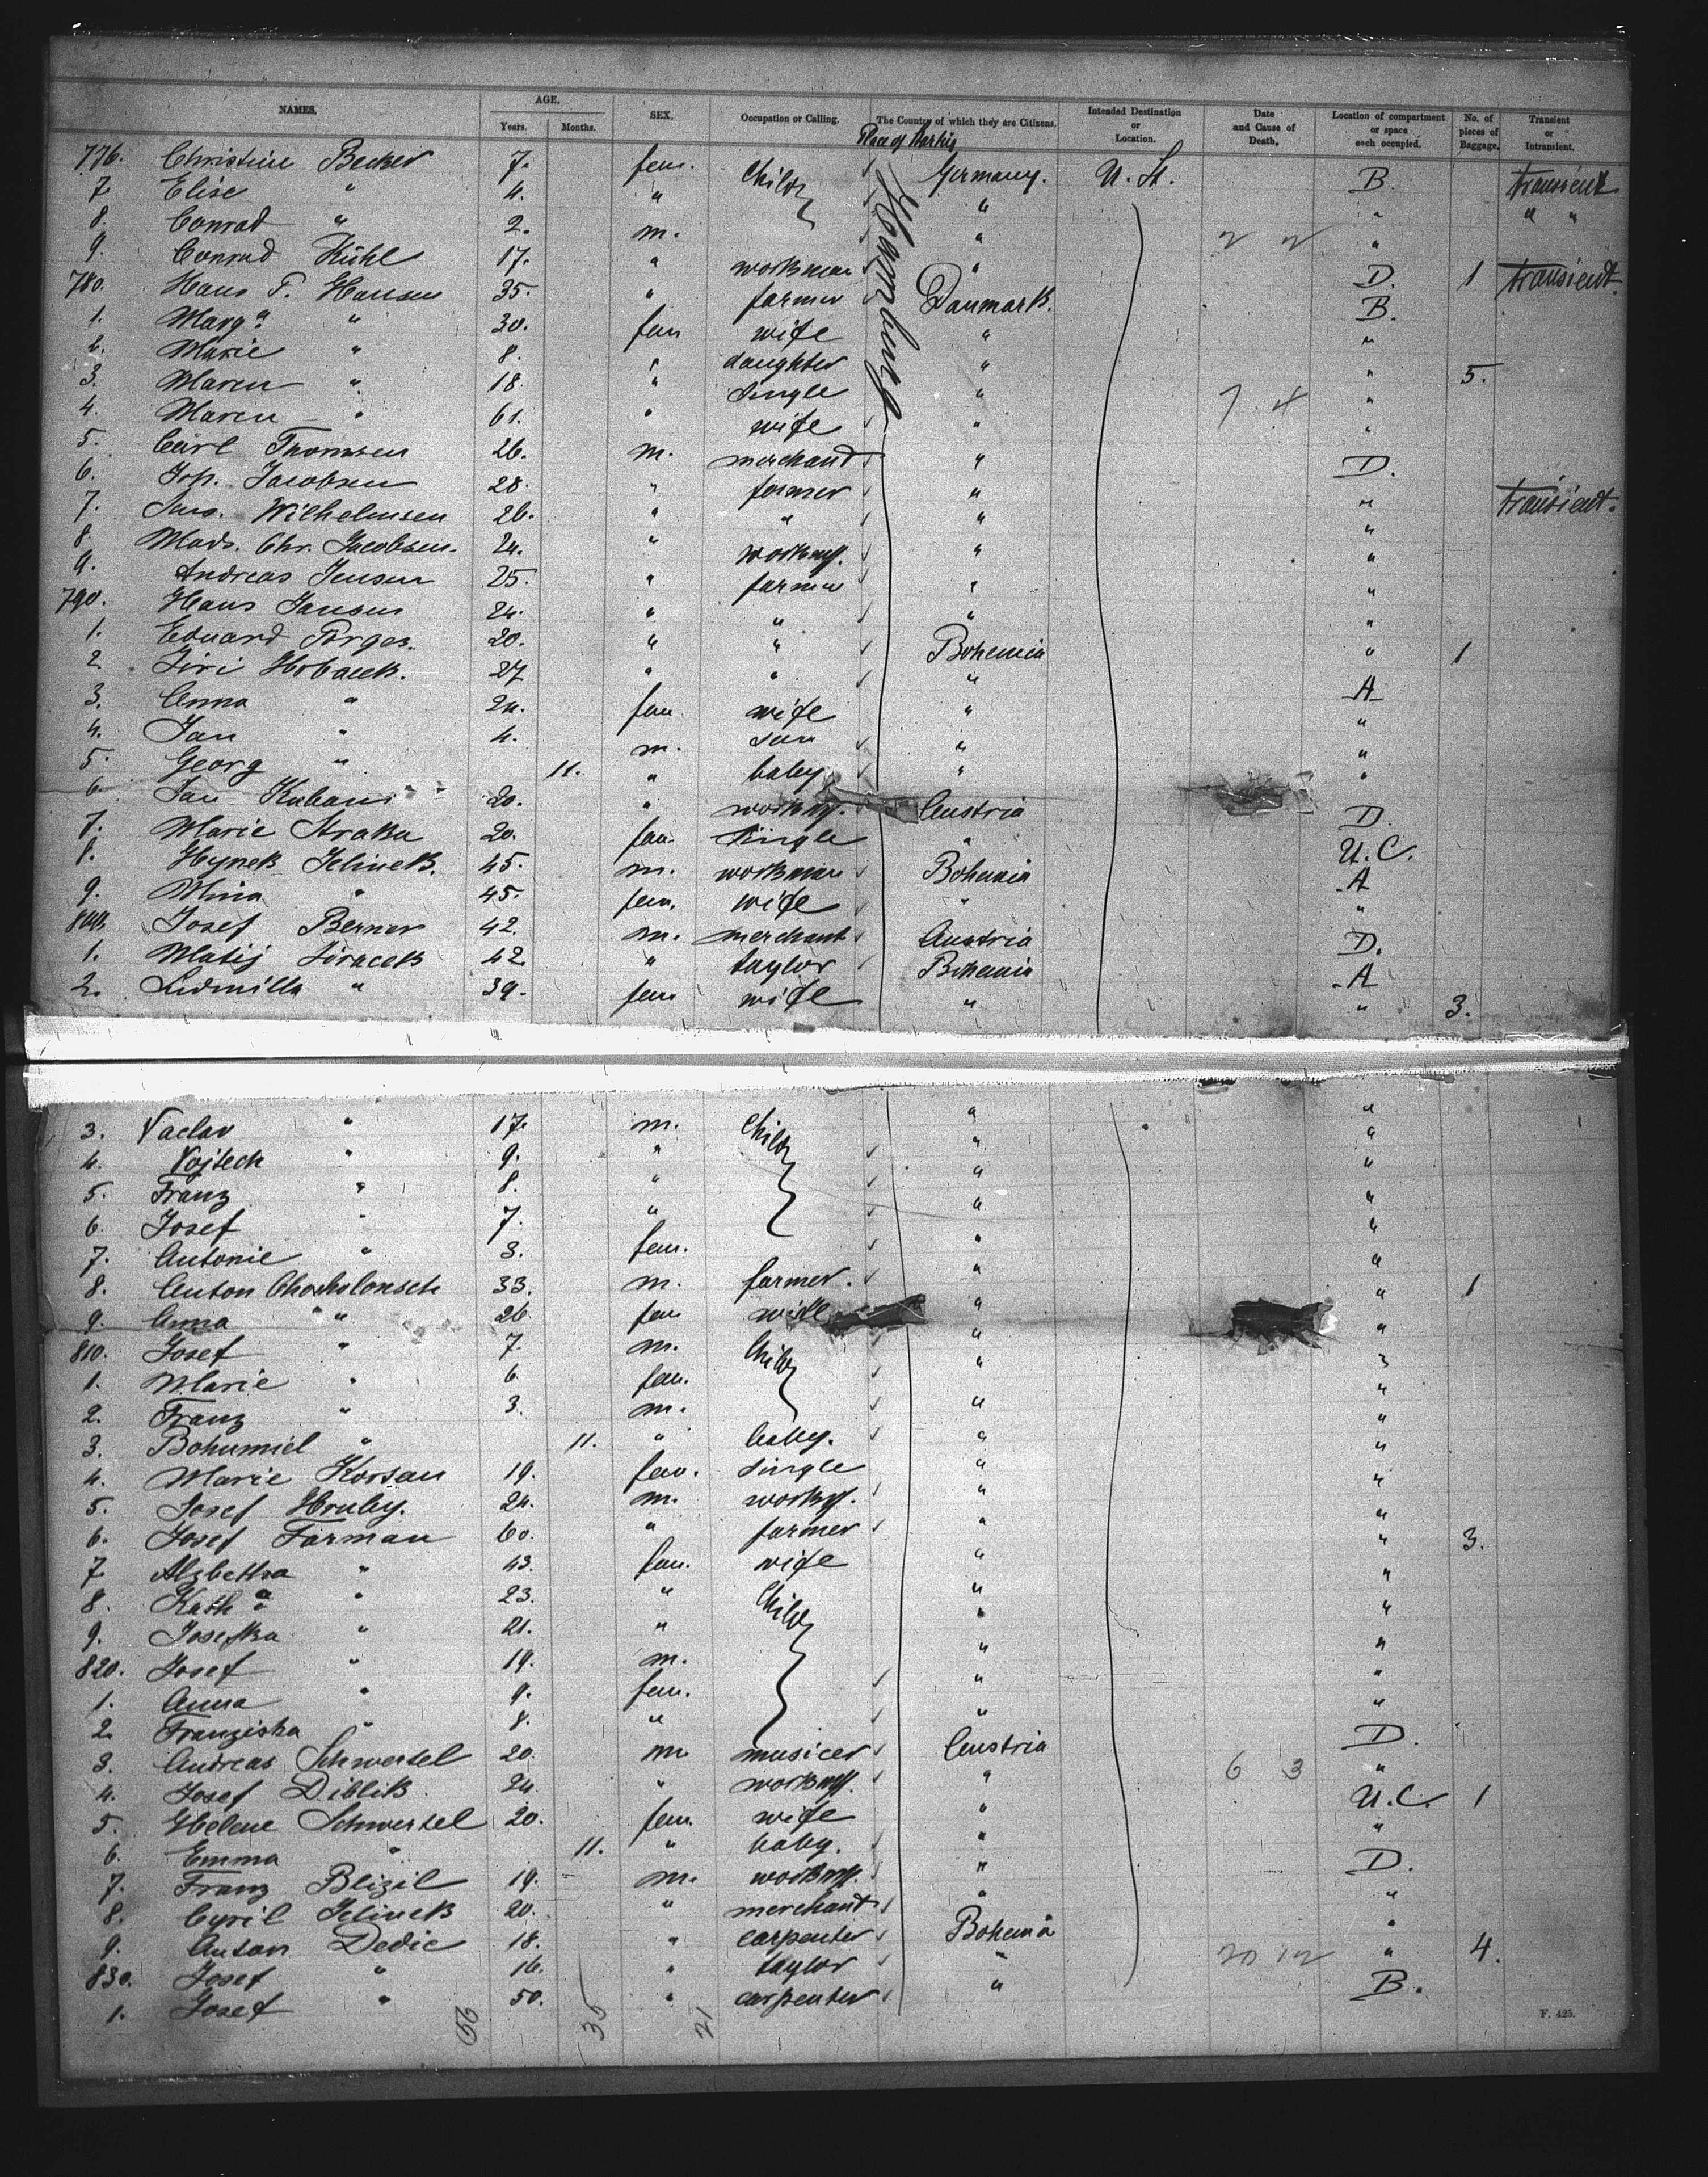 NAMES. AGE. Years. Months. SEX. Occupation or Calling. The Country of which they are Citizens. Intended Destination or Location. Date and Cause of Death. Location of compartment or space each occupied. No. of pieces of Baggage. Transient or Intransient.
Place of
776. Christine Becker 7. fem. Child Germany. U. St. B. transient
7. Elise " 4. " " " " "
8. Conrad " 2. m. " "
9. Conrad Kühl 17. " workman " D. 1 transient.
780. Hans P. Hansen 35. " farmer Danmark. B.
1. Marg.a " 30. fem wife " "
2. Marie " 8. " daughter " " 5.
3. Maren " 18. " single " "
4. Maren " 61. " wife " "
5. Carl Thomsen 26. m. merchand " D.
6. Joh. Jacobsen 28. " farmer " " transient.
7. Wilhelmsen 26. " " " "
8. Mads. Chr. Jacobsen. 24. " workm. " "
9. Andreas Jensen 25. " farmer " "
790. Hans Jansen 24. " " " "
1. Eduard Porges. 20. " " Bohemia " 1
2. Jiri 27 " " " A
3. Anna " 24. fem wife " "
4. Jan " 4. m. son " "
5. Georg " 11. " baby " "
6. Jan Kubani 20. " workm. Austria D.
7. Marie Straka 20. fem. single " U.C.
8. Hynek Jelinek. 45. m. workman Bohemia A
9. Mina " 45. fem. wife " "
800. Josef Berner 42. m. merchant Austria D.
1. Matij Jiracek 42 " taylor Bohemia A
2. Ludmilla " 39. fem wife " " 3.
3. Vaclav " 17. m. Child " "
4. Vojtech " 9. " " "
5. Franz " 8. " " "
6. Josef " 7. " " "
7. Antonie " 3. fem. " "
8. Anton 33. m. farmer. " " 1
9. Anna " 26 fem wife " "
810. Josef " 7. m. Child " "
1. Marie " 6 fem. " "
2. Franz " 3. m. " "
3. Bohumiel " 11. " baby. " "
4. Marie Korsan 19. fem. single " "
5. Josef Hruby. 24. m. workm. " "
6. Josef Forman 60. " farmer " " 3.
7. Alzbetha " 43. fem. wife " "
8. Kath.a " 23. " Child " "
9. Josefka " 21. " " "
820. Josef " 19. m. " "
1. Anna " 9. fem. " "
2. Franziska " 8. " " "
3. Andreas Schwertel 20. m. musicer Austria D.
4. Josef Diblik 24. " workm. " 6 3 "
5. Helene Schwertel 20. fem. wife " U.C. 1
6. Emma " 11. " baby. " "
7. Franz Blizil 19. m. workm. " D.
8. Cyril Jelinek 20. " merchand " "
9. Anton Dedic 18. " carpenter Bohemia "
830. Josef " 16. " taylor " 20 12 " 4.
1. Josef " 50. " carpenter " B.
56 35 21
F. 425.